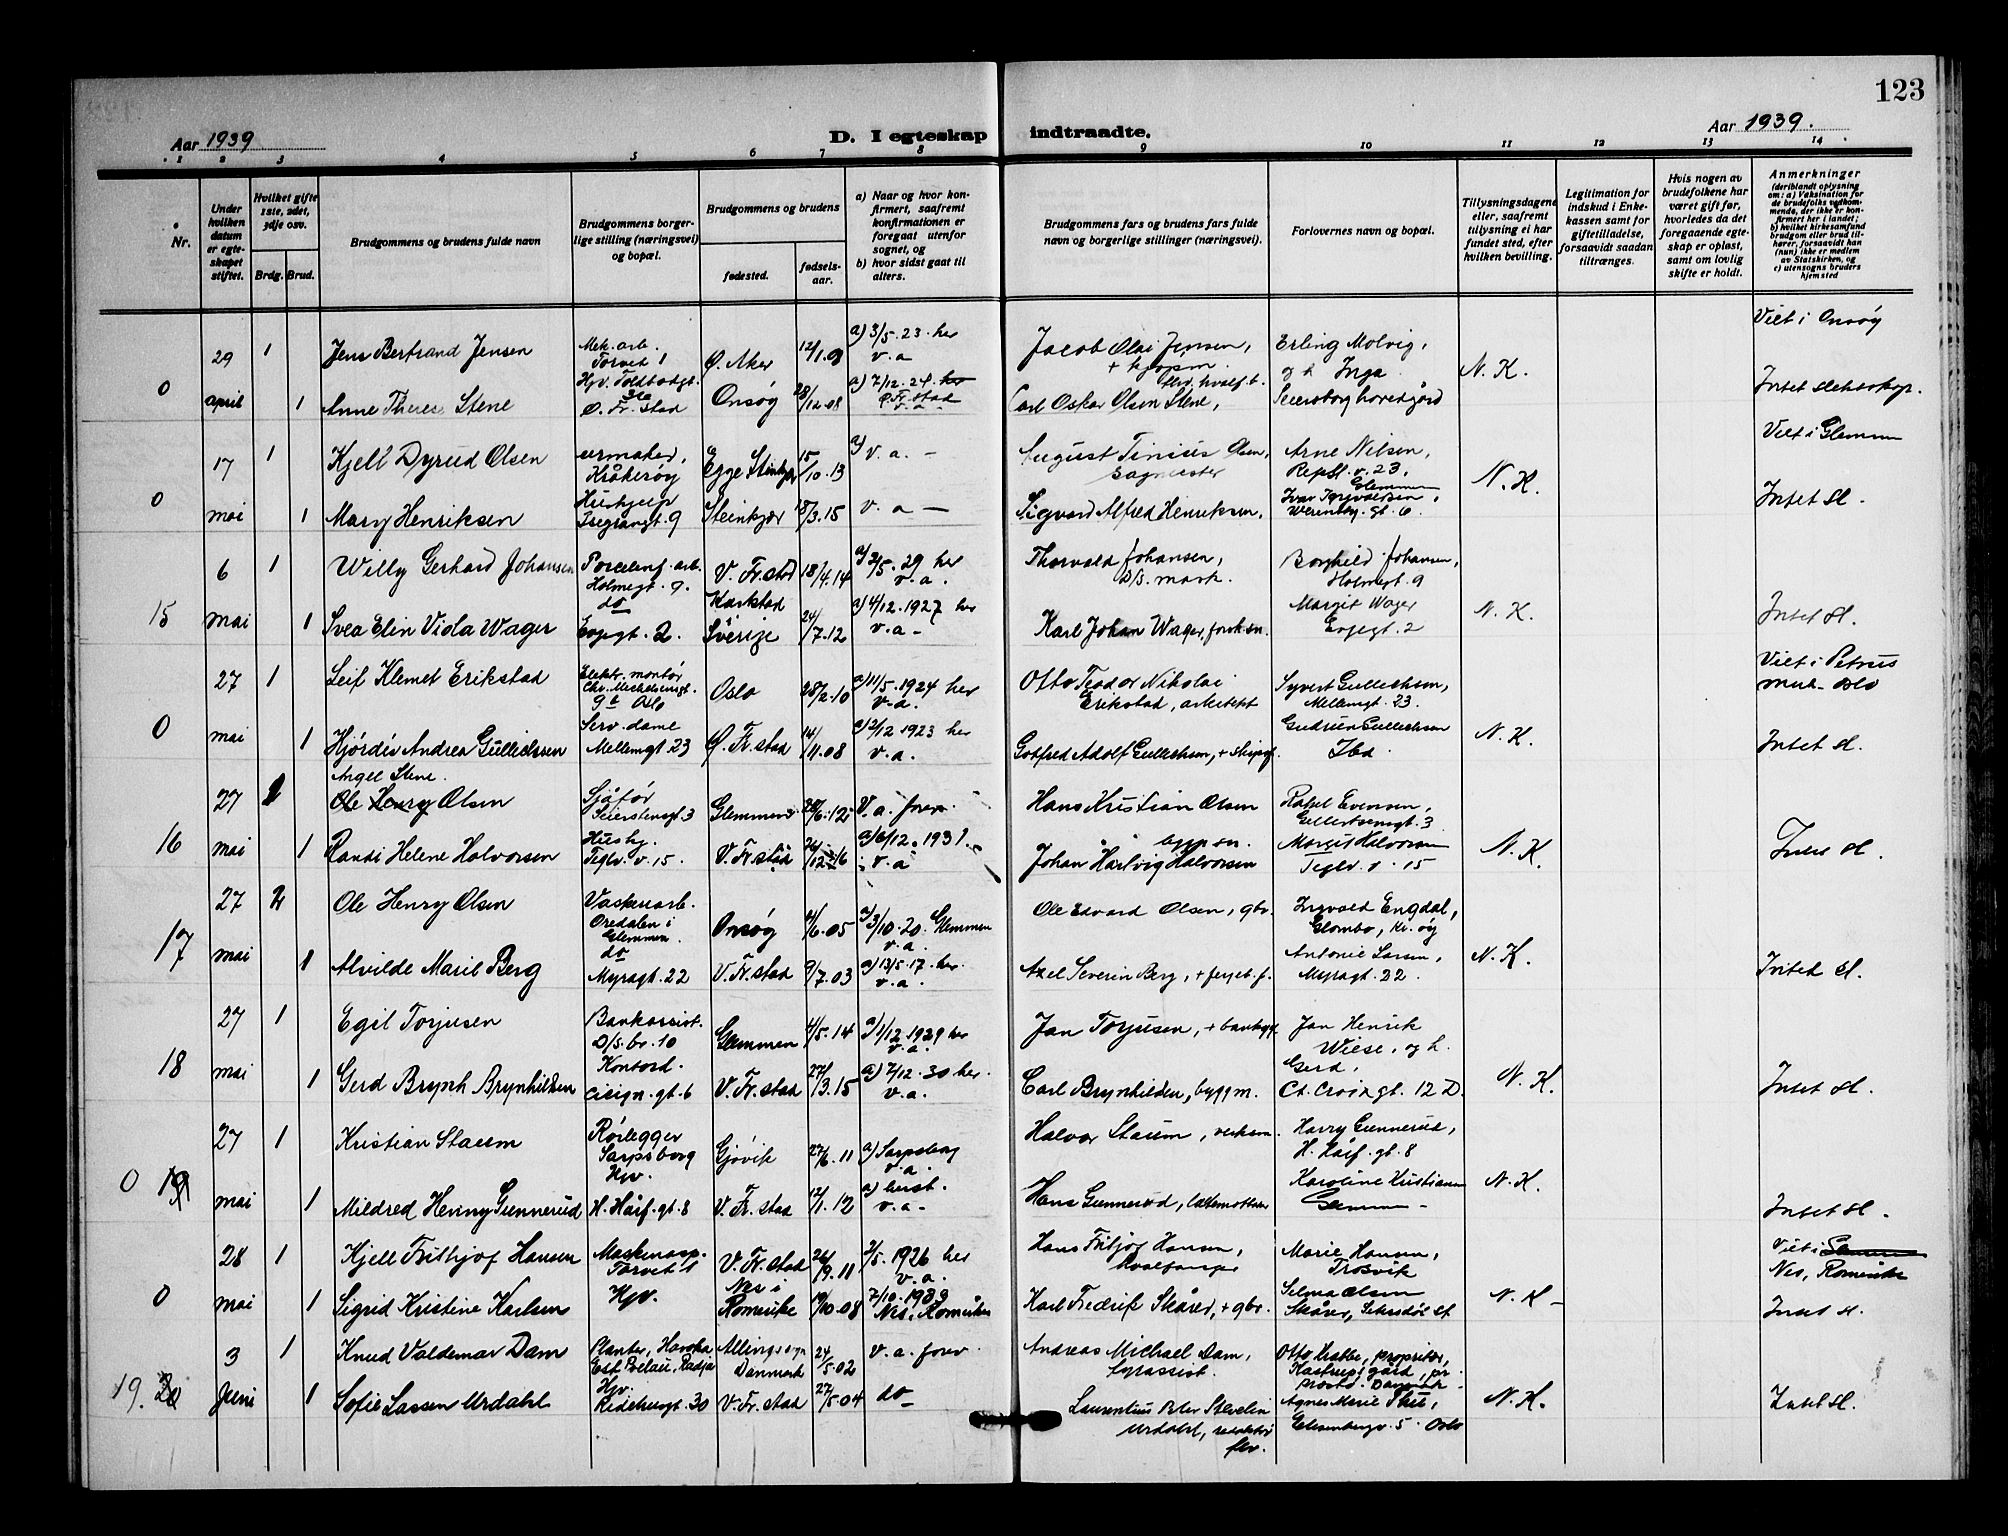 123
Aar 1939
D. I egteskap indtraadte.
Aar 1939.
1 2 3 4 5 6 7 8 9 10 11 12 13 14
Nr.
Under hvilken datum er egteskapet stiftet.
Hvilket gifte 1ste, 2det, 3dje osv.
Brdg. Brud.
Brudgommens og brudens fulde navn
Brudgommens borgerlige stilling (næringsvei) og bopæl.
Brudgommens og brudens
fødested.
fødselsaar.
a) Naar og hvor konfirmert, saafremt konfirmationen er foregaat utenfor sognet, og
b) hvor sidst gaat til alters.
Brudgommens fars og brudens fars fulde navn og borgerlige stillinger (næringsvei).
Forlovernes navn og bopæl.
Tillysningsdagene eller, saafremt tillysning ei har fundet sted, efter hvilken bevilling.
Legitimation for indskud i Enkekassen samt for giftetilladelse, forsaavidt saadan tiltrænges.
Hvis nogen av brudefolkene har været gift før, hvorledes da det foregaaende egteskap er opløst, samt om lovlig skifte er holdt.
Anmerkninger
(deriblandt oplysning om: a) Vaksination for de brudefolks vedkommende, der ikke er konfirmert her i landet;
b) hvilket kirkesamfund brudgom eller brud tilhører, forsaavidt han (hun) ikke er medlem av Statskirken, og
c) utensogns bruders hjemsted
Viet i Onsøy
29 1 Jens Bertrand Jensen Mek. arb. Torvet 1 Ø. Aker 12/1.03 a) 3/5.23. her v. a Jacob Olai Jensen, Erling Molvig, og h. Inga N. K.
0 april 1 Anne Theres Stene Hjv. Toldbodgt. Ø. Fr. stad Onsøy 28/12.08 a) 7/12.24. her Ø. Fr. stad v. a Carl Oskar Olsen Stene, Seiersborg hovedgård Intet slektskap.
Viet i Glemmen
17 1 Kjell Dyrud Olsen urmaker, Kråkerøy Egge Steinkjer 15/10.13 a) v. a. - August Tinius Olsen, Arne Nilsen, Repsl. v. 23, Glemmen N. K.
0 mai 1 Mary Henriksen Hushjelp Isegrangt. 9 Steinkjer 18/3.15 v. a - Sigvard Alfred Henriksen, Werenskj. gt. 6. Intet sl.
6 1 Willy Gerhard Johansen Porcelensf. arb. Holmegt. 9. V. Fr. stad 18/4.14 a) 3/5.29 her v. a. Thorvald Johansen, D/S. mask. Borghild Johansen, Holmegt. 9
15 mai 1 Svea Elin Viola Wager do Eojegt. 2. Karlstad Sverige 24/7.12 a) 4/12.1927 her v. a - Karl Johan Wager, Margit Wager Eojegt. 2 N. K. Intet sl.
Viet i Petrus
27 1 Leif Klemet Erikstad Elektr. montør Oslo 28/2.10 a) 11/5.1924 her v. a. Otto Teodor Nikolai Erikstad, arkitekt Syvert Gullichsen, Mellemgt. 23.
0 mai 1 Hjørdis Andrea Gullichsen Serv. dame Mellemgt. 23 Ø. Fr. stad 14/11.08 a) 2/12 1923 her v. a. Gotfred Adolf Gullichsen, Gudrun Gullichsen Ibd. N. K. Intet sl.
Angel Stene.
27 Ole Henry Olsen Sjåfør Seierstensgt. 3 Glemmen 28/6.12 V. a. forv. Hans Kristian Olsen Rakel Evensen, Gellertsensgt. 3
16 mai 1 Randi Helene Halvorsen Hushj. Teglv. v. 15. V. Fr. stad 24/12.16 a) 6/12.1931. v. a Johan Hartvig Halvorsen Margit Halvorsen Teglv. v. 15 N. K. Intet sl.
27 2 Ole Henry Olsen Vaskeriarb. Oredalen i Glemmen. Onsøy 4/6.05 a) 3/10.20. Glemmen v. a. Ole Edvard Olsen, gbr. Ingvald Engdal, Glombo, Kr. øy
17 mai 1 Alvilde Marie Berg do Myragt. 22 V. Fr. stad 9/7.03 a) 13/5.17. her. v. a. Axel Severin Berg, Antonie Larsen, Myragt. 22. N. K. Intet sl.
27 1 Egil Torjusen Bankassist. D/S. br. 10 Glemmen 4/5.14 a) 1/12 1929 her v. a. Jan Torjusen, Jan Henrik Wiese, og h. Gerd,
18 mai 1 Gerd Brynh Brynhildsen Kontord. Cicign. gt. 6 V. Fr. stad 27/3.15 a) 7/12.30 her. v. a. Carl Brynhildsen, byggm. Ct. Croix gt. 12 D. N. K. Intet sl.
27 1 Kristian Staum Rørlegger Sarpsborg Gjøvik 27/6.11 a) Sarpsborg v. a. Halvor Staum, Harry Gunnerud, H. Hålf. gt. 8
0 19 mai 1 Mildred Henny Gunnerud Hjv. H. Hålf. gt. 8 V. Fr. stad 12/1.12 a) v. a - Hans Gunnerud, Karoline Kristiansen N. K. Intet sl.
Viet i
28 1 Kjell Fritjof Hansen Maskinasp. Torvet 1 V. Fr. stad 26/9.11 2/5.1926 her v. a. Hans Fritjof Hansen, hvalfanger Marie Hansen, Trosvik Nes, Romerike
0 mai 1 Sigrid Kristine Karlsen Hjv. Nes i Romerike 19/10.08 7/10.1923 Nes, Romerike Karl Fredrik Skårer, + gbr. Selma Olsen Skårer, N. K - Intet sl.
3 1 Knud Valdemar Dam Planter, Allinge sogn Danmark 24/5.02 v. a. forv. Andreas Michael Dam, Otto Krabbe, proprietær, Kastrupgård, pr. Præstø. Danmark
19. 20 Juni 1 Sofie Lassen Urdahl Hjv. Ridehusgt. 30 V. Fr. stad 27/5.04 do - Laurentius Peter Stevelin Urdahl, redaktør Agnes Marie Elisenbergv. 5. Oslo N. K. Intet sl.